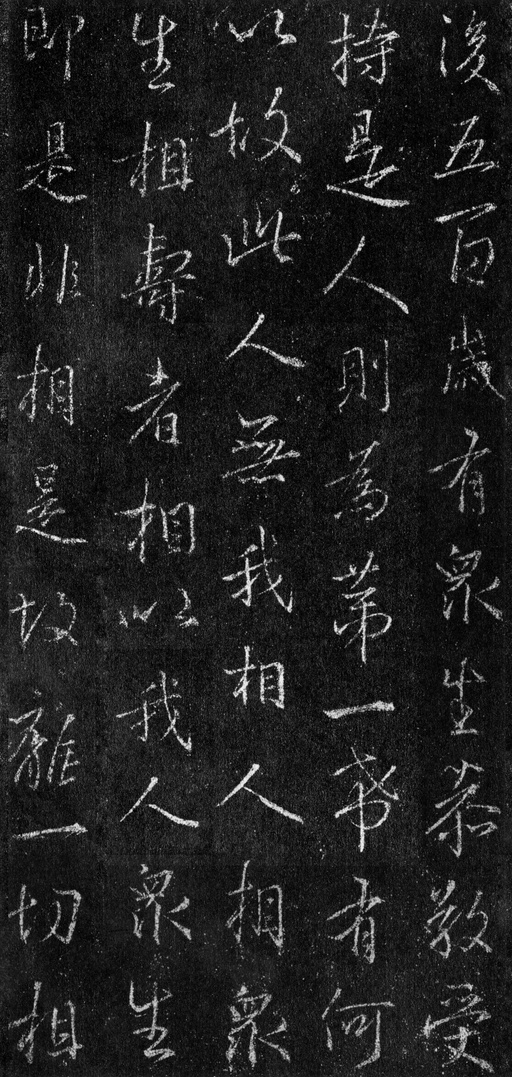 後五百歲有眾生恭敬受
持是人則為第一希有何
以故此人無我相人相眾
生相壽者相以我人眾生
即是非相是故離一切相